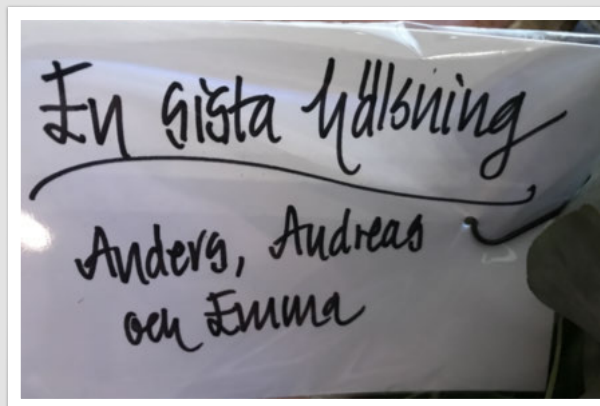 En sista hälsning
Anders, Andreas
och Emma